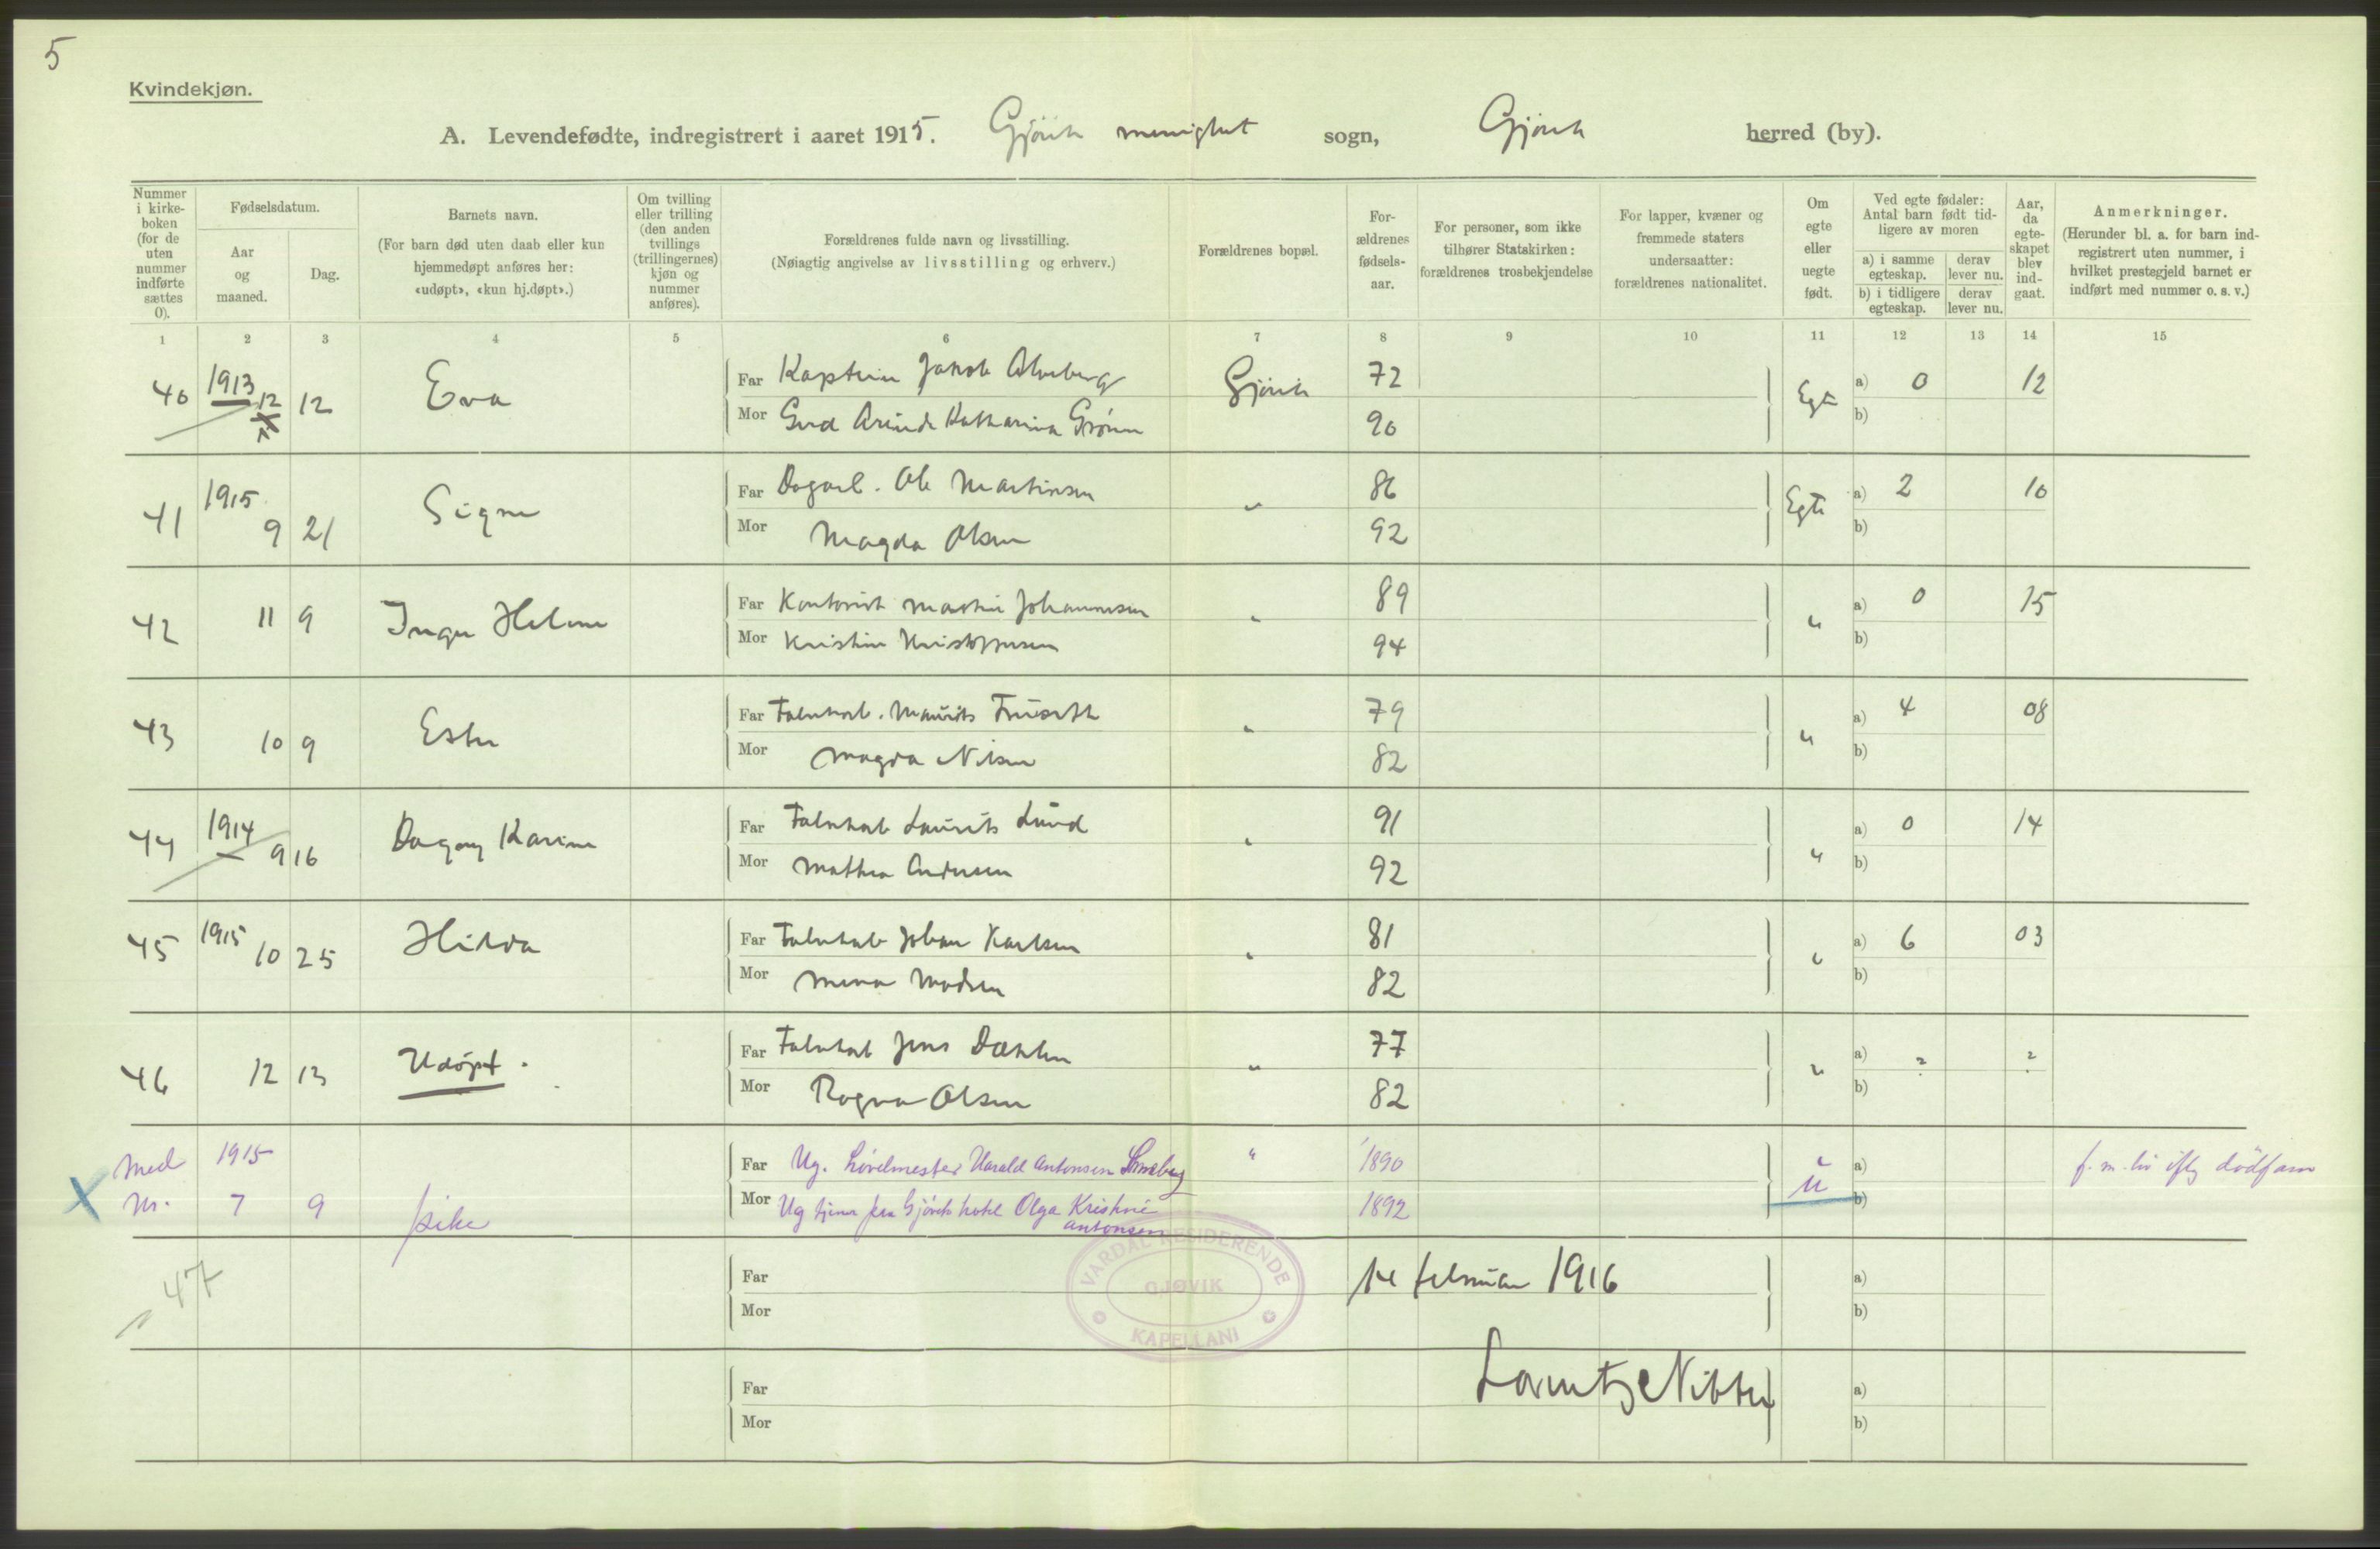 5
Kvindekjøn.
A. Levendefødte, indregistrert i aaret 1915. Gjövik menighet sogn, Gjövik herred (by).
Nummer i kirke-boken (for de uten nummer indførte sættes 0).
Fødselsdatum.
Aar og maaned.
Dag.
Barnets navn.
(For barn død uten daab eller kun hjemmedøpt anføres her: «udøpt», «kun hj.døpt».)
Om tvilling eller trilling (den anden tvillings (trillingernes) kjøn og nummer anføres).
Forældrenes fulde navn og livsstilling.
(Nøiagtig angivelse av livsstilling og erhverv.)
Forældrenes bopæl.
For-ældrenes fødsels-aar.
For personer, som ikke tilhører Statskirken: forældrenes trosbekjendelse
For lapper, kvæner og fremmede staters undersaatter: forældrenes nationalitet.
Om egte eller uegte født.
Ved egte fødsler: Antal barn født tid-ligere av moren
a) i samme egteskap. derav lever nu.
b) i tidligere egteskap. derav lever nu.
Aar, da egte-skapet blev ind-gaat.
Anmerkninger.
(Herunder bl. a. for barn ind-registrert uten nummer, i hvilket prestegjeld barnet er indført med nummer o. s. v.)
1 2 3 4 5 6 7 8 9 10 11 12 13 14 15
40 1913 12 12 Eva Far Kaptein Jakob Gjövik 72 Egte a) 0 12
Mor Katharina Grönn 90 b)
41 1915 9 21 Signe Far Dagarb. Ole Martinsen " 86 Egte a) 2 10
Mor Magda Olsen 92 b)
42 11 9 Inger Helene Far Kontorist Martin Johannesen " 89 " a) 0 15
Mor Kristine Kristoffersen 94 b)
43 10 9 Ester Far Fabrikarb. Maurits " 79 " a) 4 08
Mor Magda Nilsen 82 b)
44 1914 9 16 Dagny Karine Far Fabrikarb Laurits Lund " 91 " a) 0 14
Mor Mathea Andersen 92 b)
45 1915 10 25 Hilda Far Fabrikarb Johan Karlsen " 81 " a) 6 03
Mor Mina Madsen 82 b)
46 12 13 Udöpt. Far Fabrikarb Jens Dæhlen " 77 " a) ? ?
Mor Ragna Olsen 82 b)
Med 1915 Far Ug. Harald Antonsen " 1890 u a) f. m. liv iflg dödfam
nr. 7 9 pike Mor Ug fra Gjövik hotel Olga Kristine Antonsen 1892 b)
47 Far 14 februar 1916 a)
Mor b)
VARDAL RESIDERENDE
GJØVIK
KAPELLANI
Far Lorentz a)
Mor b)